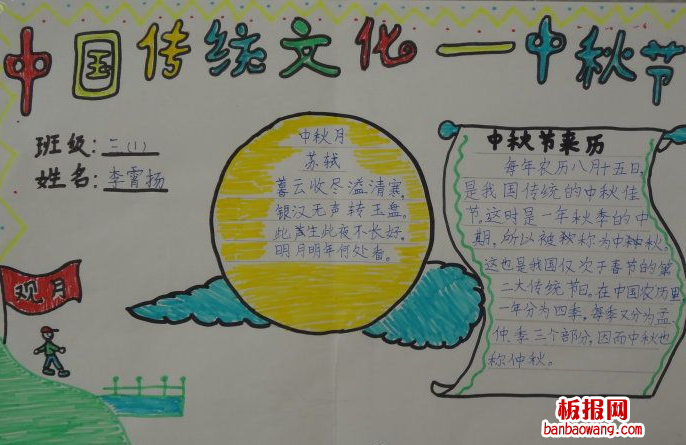 中国传统文化——中秋节
班级:三(1)
姓名:李霄扬
中秋月
苏轼
暮云收尽溢清寒,
银汉无声转玉盘。
此生此夜不长好,
明月明年何处看。
中秋节来历
每年农历八月十五日,
是我国传统的中秋佳
节。这时是一年秋季的中
期,所以被称为中秋。
这也是我国仅次于春节的第
二大传统节日。在中国农历里
一年分为四季,每季又分为孟
仲.季三个部分,因而中秋也
称仲秋。
观月
板报网
banbaowang.com